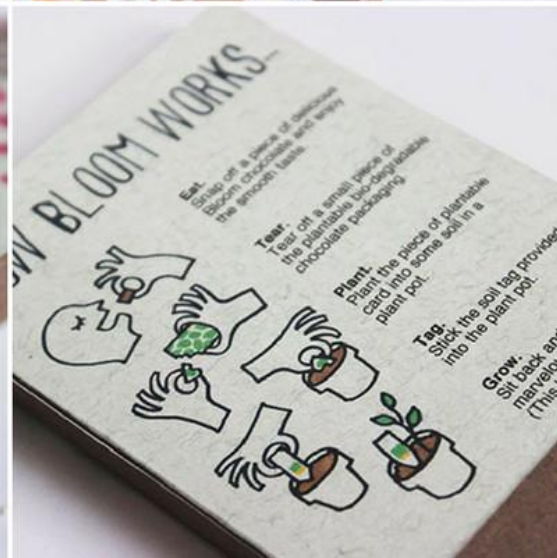 BLOOM WORKS...
Eat.
Snap off a piece of delicious
Bloom chocolate and enjoy
the smooth taste.
Tear.
Tear off a small piece of
the plantable bio-degradable
chocolate packaging
Plant.
Plant the piece of plantable
card into some soil in a
plant pot.
Tag.
Stick the soil tag provided
into the plant pot.
Grow.
Sit back and
(This